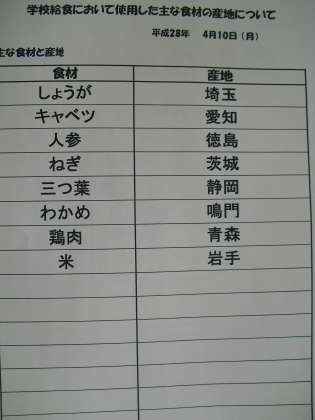 学校給食において使用した主な食材の産地について
平成28年 4月10日（月）
主な食材と産地
食材 産地
しょうが 埼玉
キャベツ 愛知
人参 徳島
ねぎ 茨城
三つ葉 静岡
わかめ 鳴門
鶏肉 青森
米 岩手